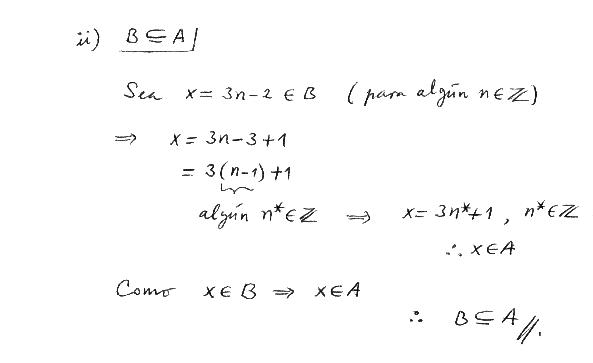 ii) B ⊆ A
Sea x = 3n-2 ∈ B (para algún n ∈ ℤ)
⇒ x = 3n-3+1
= 3(n-1)+1
algún n* ∈ ℤ ⇒ x = 3n*+1, n* ∈ ℤ
∴ x ∈ A
Como x ∈ B ⇒ x ∈ A
∴ B ⊆ A //.